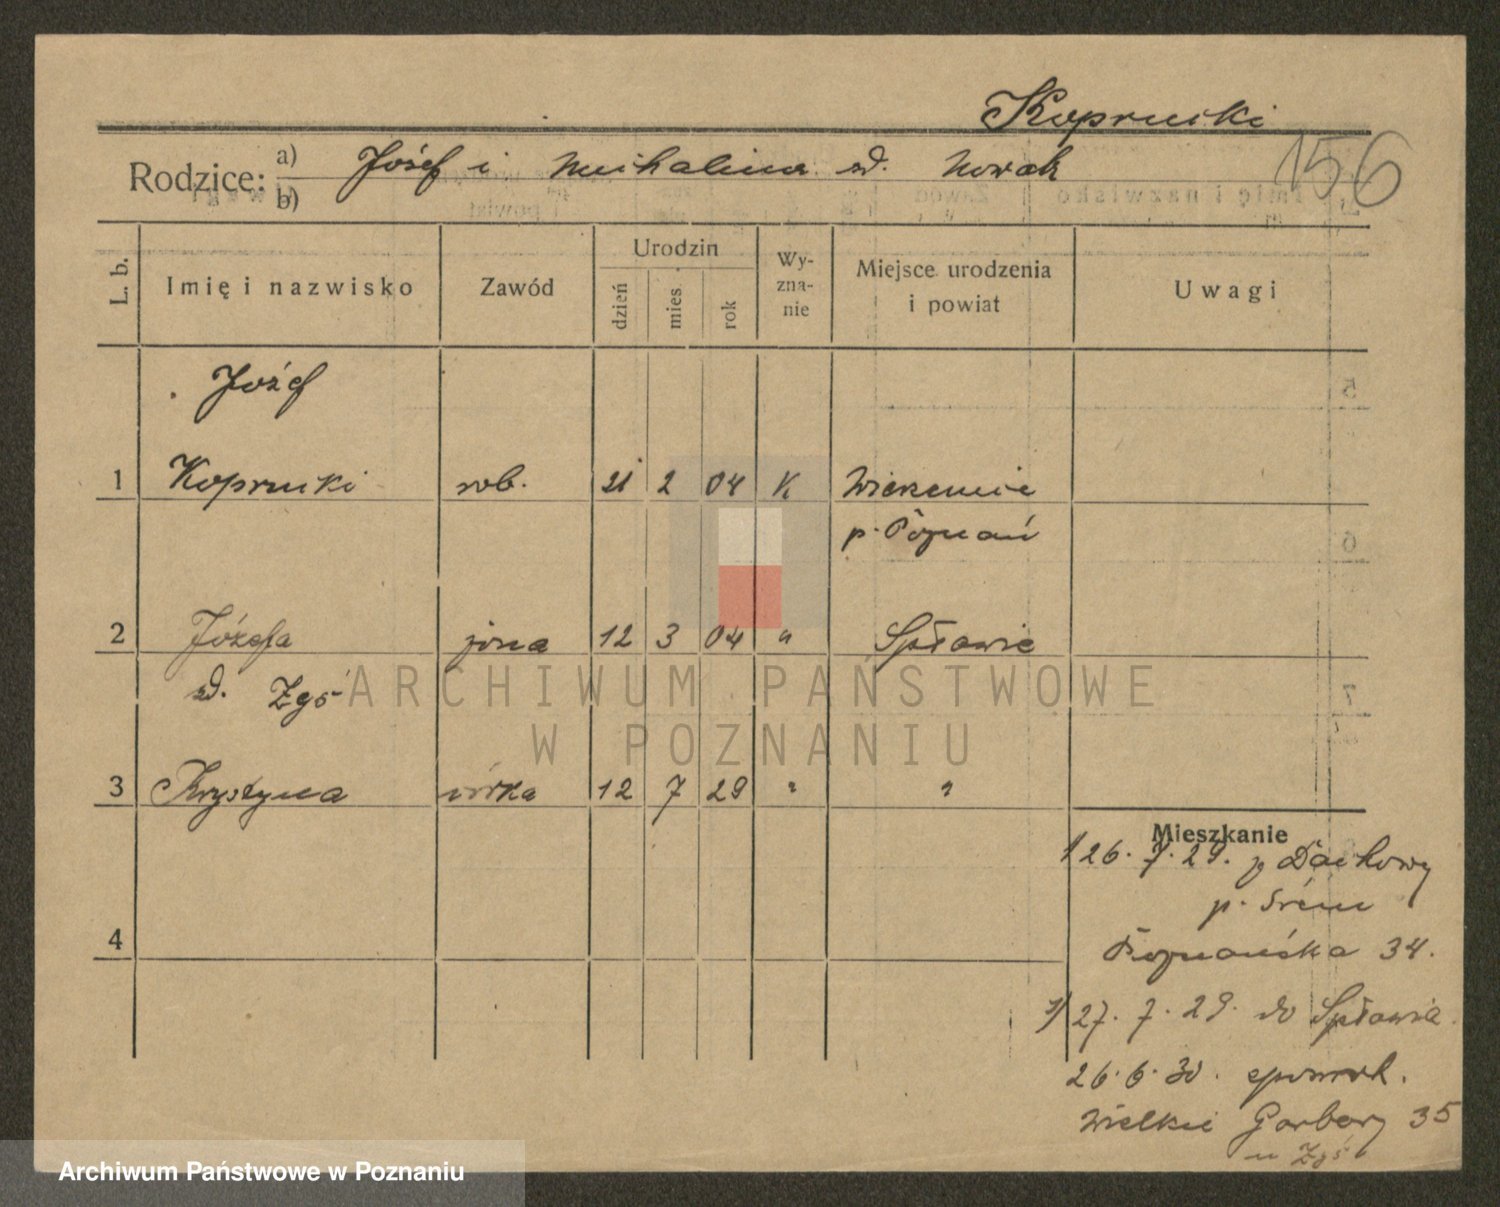 Kopruki
156
Rodzice: a) Józef i Michalina zd. Nowak
b)
L. b. Imię i nazwisko Zawód Urodzin dzień mies. rok Wy-zna-nie Miejsce urodzenia i powiat Uwagi
Józef
1 Kopruki rob. 21 2 04 K
p. Poznań
2 Józefa żona 12 3 04 " Spławie
zd. Zgś
3 Krystyna córka 12 7 29 " "
4
Mieszkanie
1/ 26. 7. 29. p Dachowy
p. Śrem
Poznańska 34.
1/ 27. 7. 29. do Spławia.
26. 6. 30.
Wielkie Garbary 35
u Zgś
ARCHIWUM PAŃSTWOWE
W POZNANIU
Archiwum Państwowe w Poznaniu